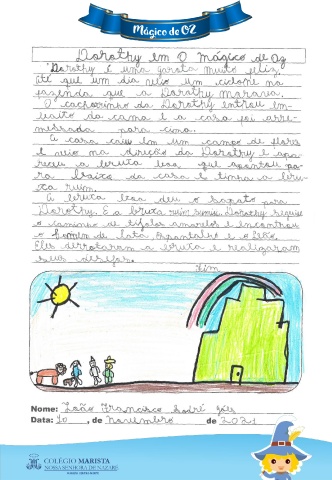 Mágico de OZ
Dorothy em O mágico de Oz
Dorothy é uma garota muito feliz.
Até que um dia veio um ciclone na
fazenda que a Dorothy morava.
O cachorrinho da Dorothy entrou em-
baixo da cama e a casa foi arre-
messada para cima.
A casa caiu em um campo de flores
e veio na direção da Dorothy e apa-
receu a bruxa boa que apontou pa-
ra baixo da casa e tinha a bru-
xa ruim.
A bruxa boa deu o sapato para
Dorothy. E a bruxa ruim sumiu. Dorothy seguiu
o caminho de tijolos amarelos e encontrou
o Homem de lata, espantalho e o leão.
Eles derrotaram a bruxa e realizaram
seus desejos.
Fim
Nome: João Francisco
Data: 10, de Novembro de 2021
COLÉGIO MARISTA
NOSSA SENHORA DE NAZARÉ